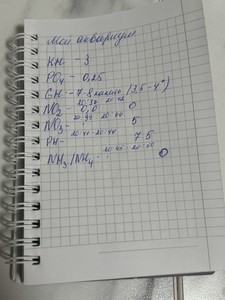 Мой аквариум
KH - 3
PO4 - 0,25
GH - 7-8 капель (3,5-4°)
NO2 - 0,0 0
NO3 - 5
PH - 7.5
NH3/NH4 - 0